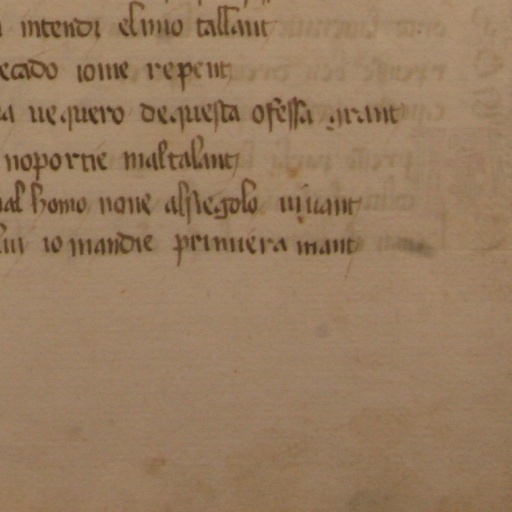 intendi el mio tallant
ecado io me repent
a ue quero de questa ofessa grant
no portie mal talant
al homo none al siegolo uiuant
lui io mandie per uiera mant